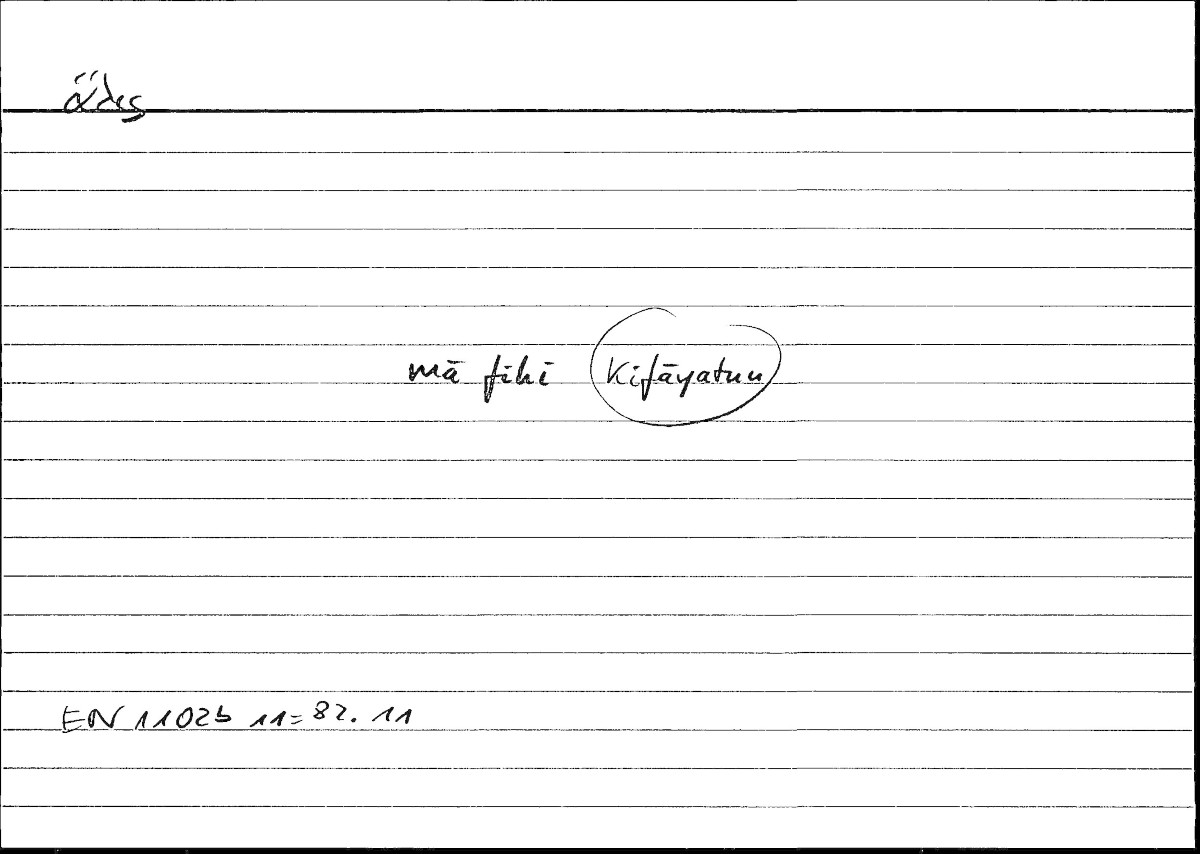 ἅλις
mā fīhi kifāyatun
EN 1102b 11 = 82. 11